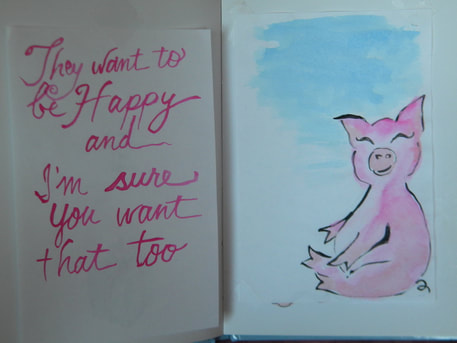 They want to
be Happy
and
I'm sure
you want
that too